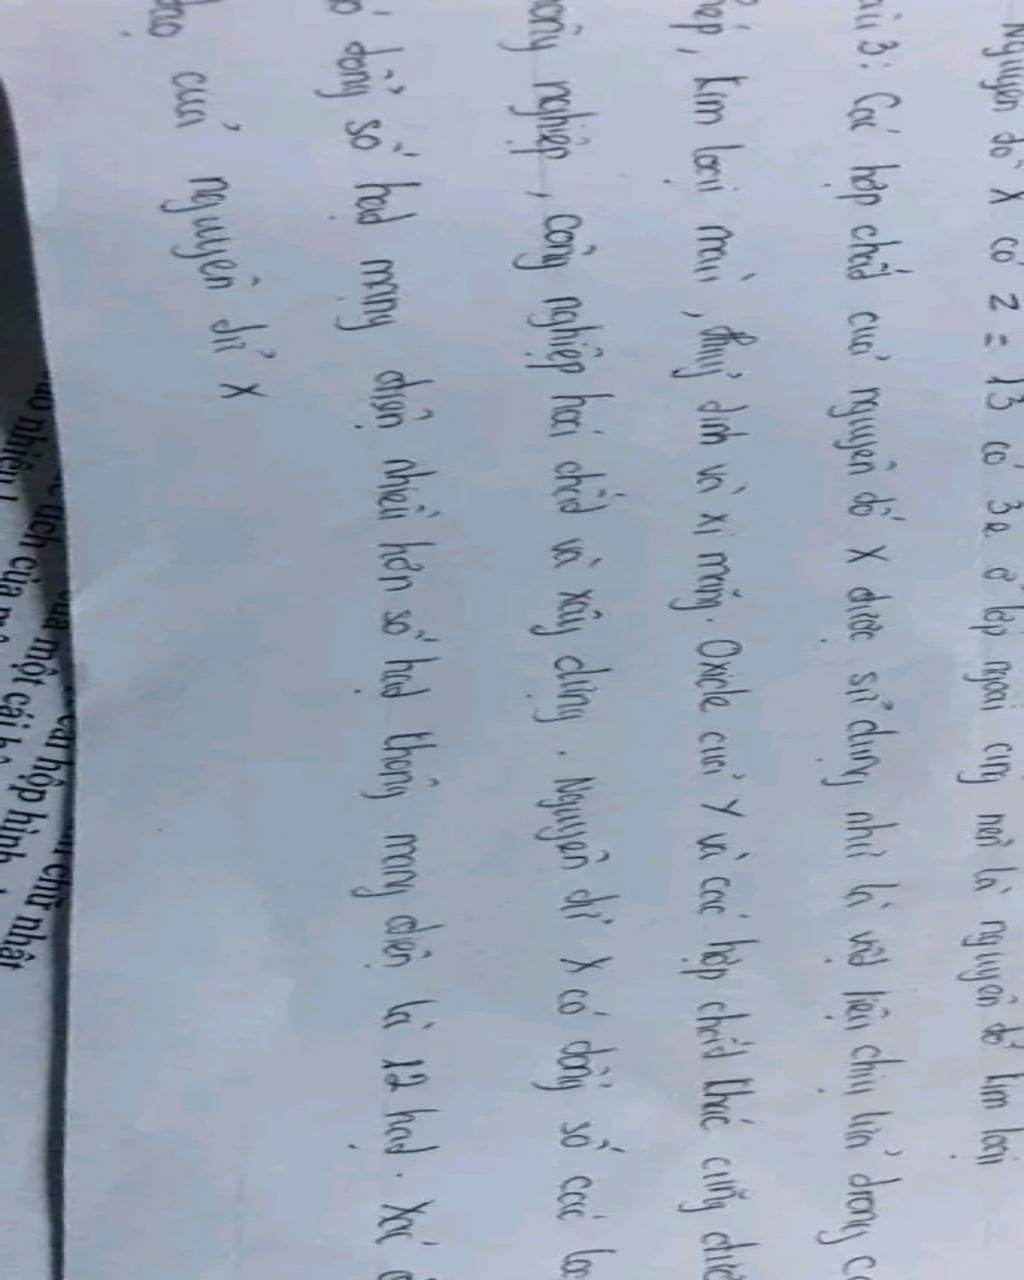 Nguyên tố X có Z = 13 có 3e ở lớp ngoài cùng nên là nguyên tố kim loại
3: Các hợp chất của nguyên tố X được sử dụng như là vật liệu chịu lửa trong
kim loại màu, thủy tinh và xi măng. Oxide của Y và các hợp chất khác cũng
nghiệp, công nghiệp hoá chất và xây dựng. Nguyên tử X có tổng số các
tổng số hạt mang điện nhiều hơn số hạt không mang điện là 12 hạt. Xác
của nguyên tử X
cái hộp hình chữ nhật
của một cái
tích của